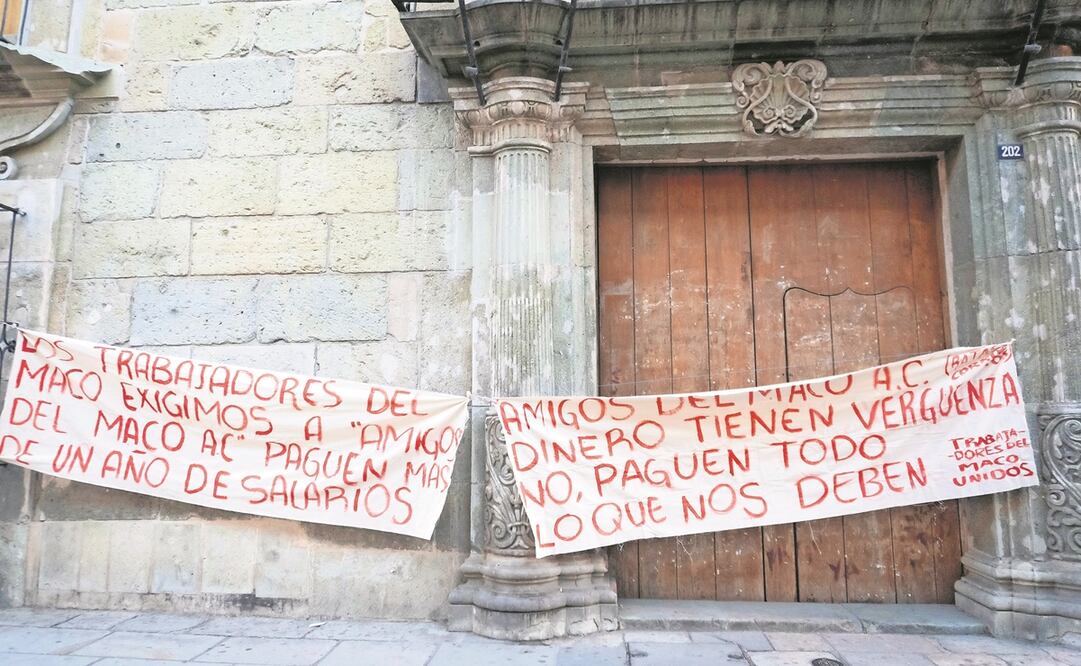 LOS TRABAJADORES DEL
MACO EXIGIMOS A "AMIGOS
DEL MACO AC" PAGUEN MAS
DE UN AÑO DE SALARIOS
202
AMIGOS DEL MACO A.C.
DINERO TIENEN VERGUENZA
NO, PAGUEN TODO
LO QUE NOS DEBEN
TRABAJA-
-DORES DEL
MACO
UNIDOS